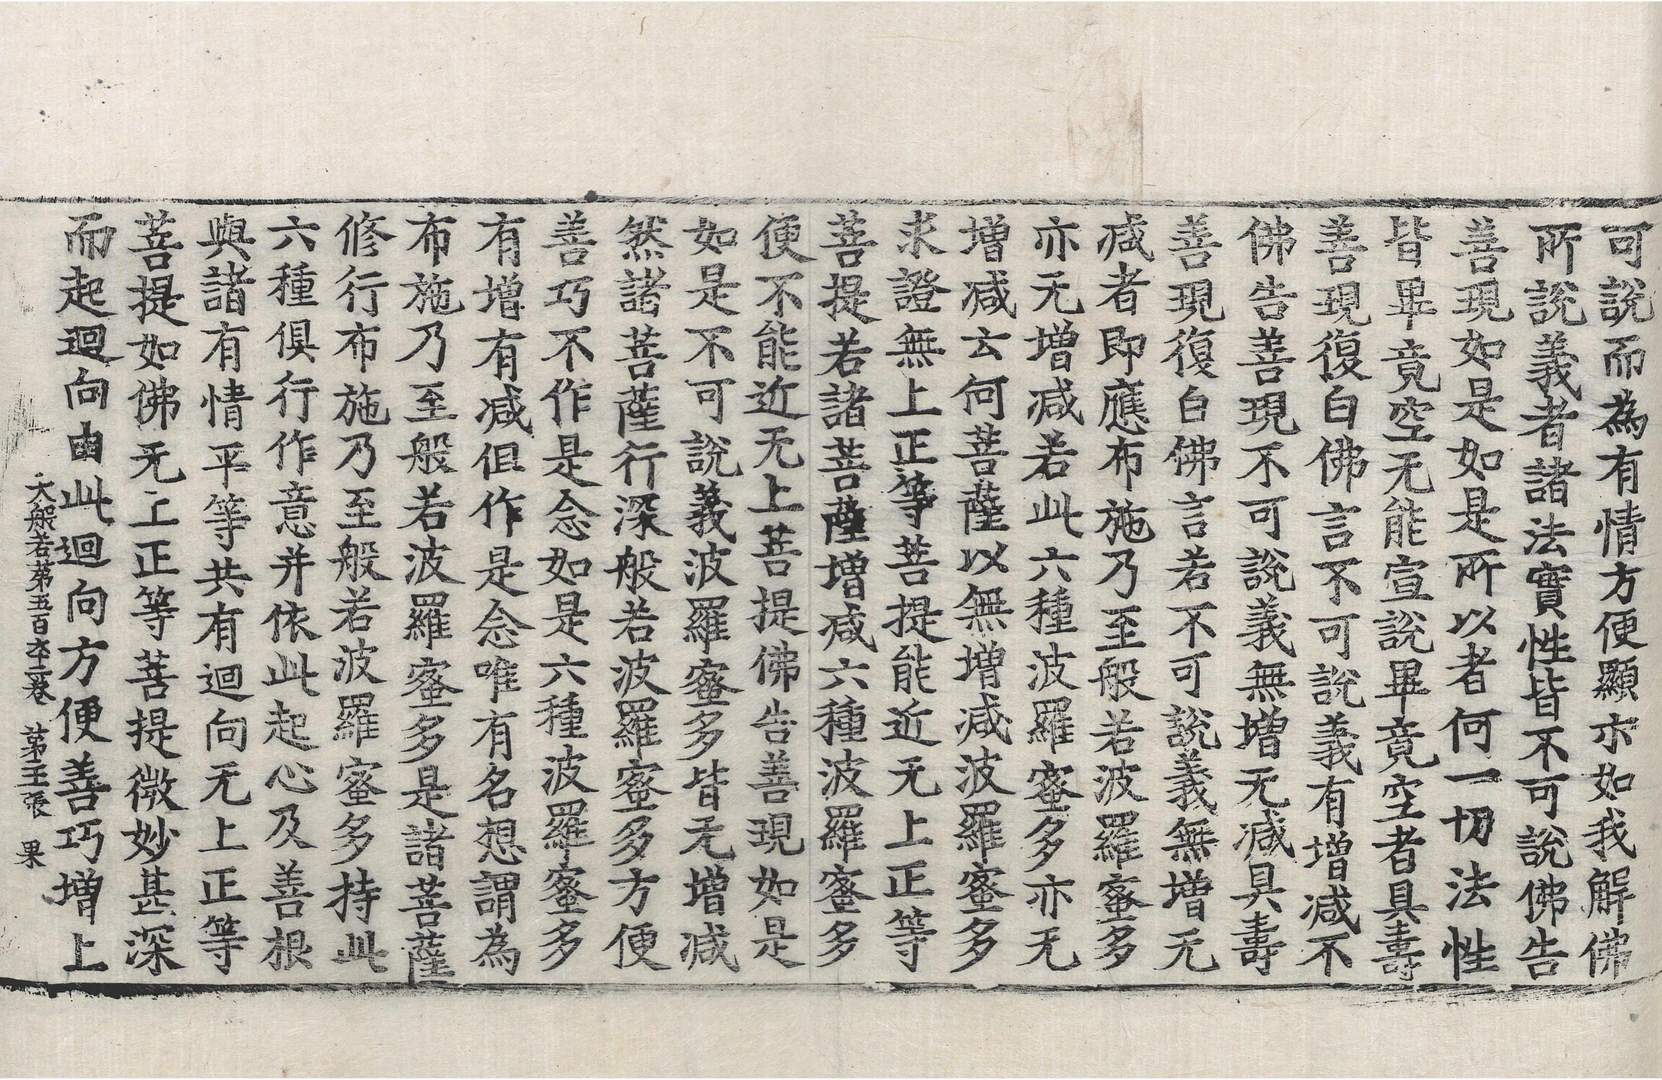 可說而為有情方便顯示如我解佛
所說義者諸法實性皆不可說佛告
善現如是如是所以者何一切法性
皆畢竟空无能宣說畢竟空者具壽
善現復白佛言不可說義有增減不
佛告善現不可說義無增无減具壽
善現復白佛言若不可說義無增无
減者即應布施乃至般若波羅蜜多
亦无增減若此六種波羅蜜多亦无
增減云何菩薩以無增減波羅蜜多
求證無上正等菩提能近无上正等
菩提若諸菩薩增減六種波羅蜜多
便不能近无上菩提佛告善現如是
如是不可說義波羅蜜多皆无增減
然諸菩薩行深般若波羅蜜多方便
善巧不作是念如是六種波羅蜜多
有增有減但作是念唯有名想謂為
布施乃至般若波羅蜜多是諸菩薩
修行布施乃至般若波羅蜜多持此
六種俱行作意并依此起心及善根
與諸有情平等共有迴向无上正等
菩提如佛无上正等菩提微妙甚深
而起迴向由此迴向方便善巧增上
大般若第五百六十二卷 第三張 果